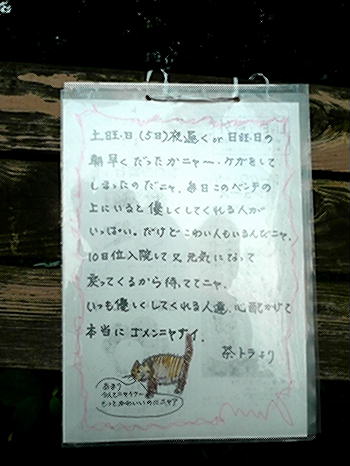 土曜・日(5日)夜遅く or 日曜・日の
朝早くだったかニャ〜・ケガをして
しまったのだニャ、毎日このベンチの
上にいると優しくしてくれる人が
いっぱい。だけどこわい人もいるんだニャ、
10日位入院して又元気になって
戻ってくるから待っててニャ。
いつも優しくしてくれる人達、心配かけて
本当にゴメンニャサイ。
茶トラより
もっとかわいいのにニャア